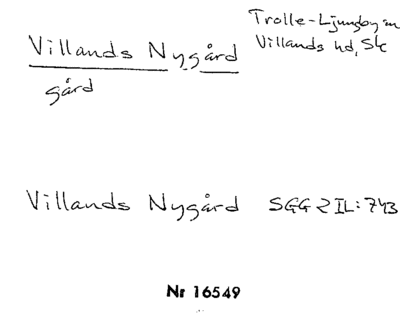 Villands Nygård
Trolle-Ljungby sn
Villands hd, Sk
gård
Villands Nygård SGG 2 II: 743
Nr 16549